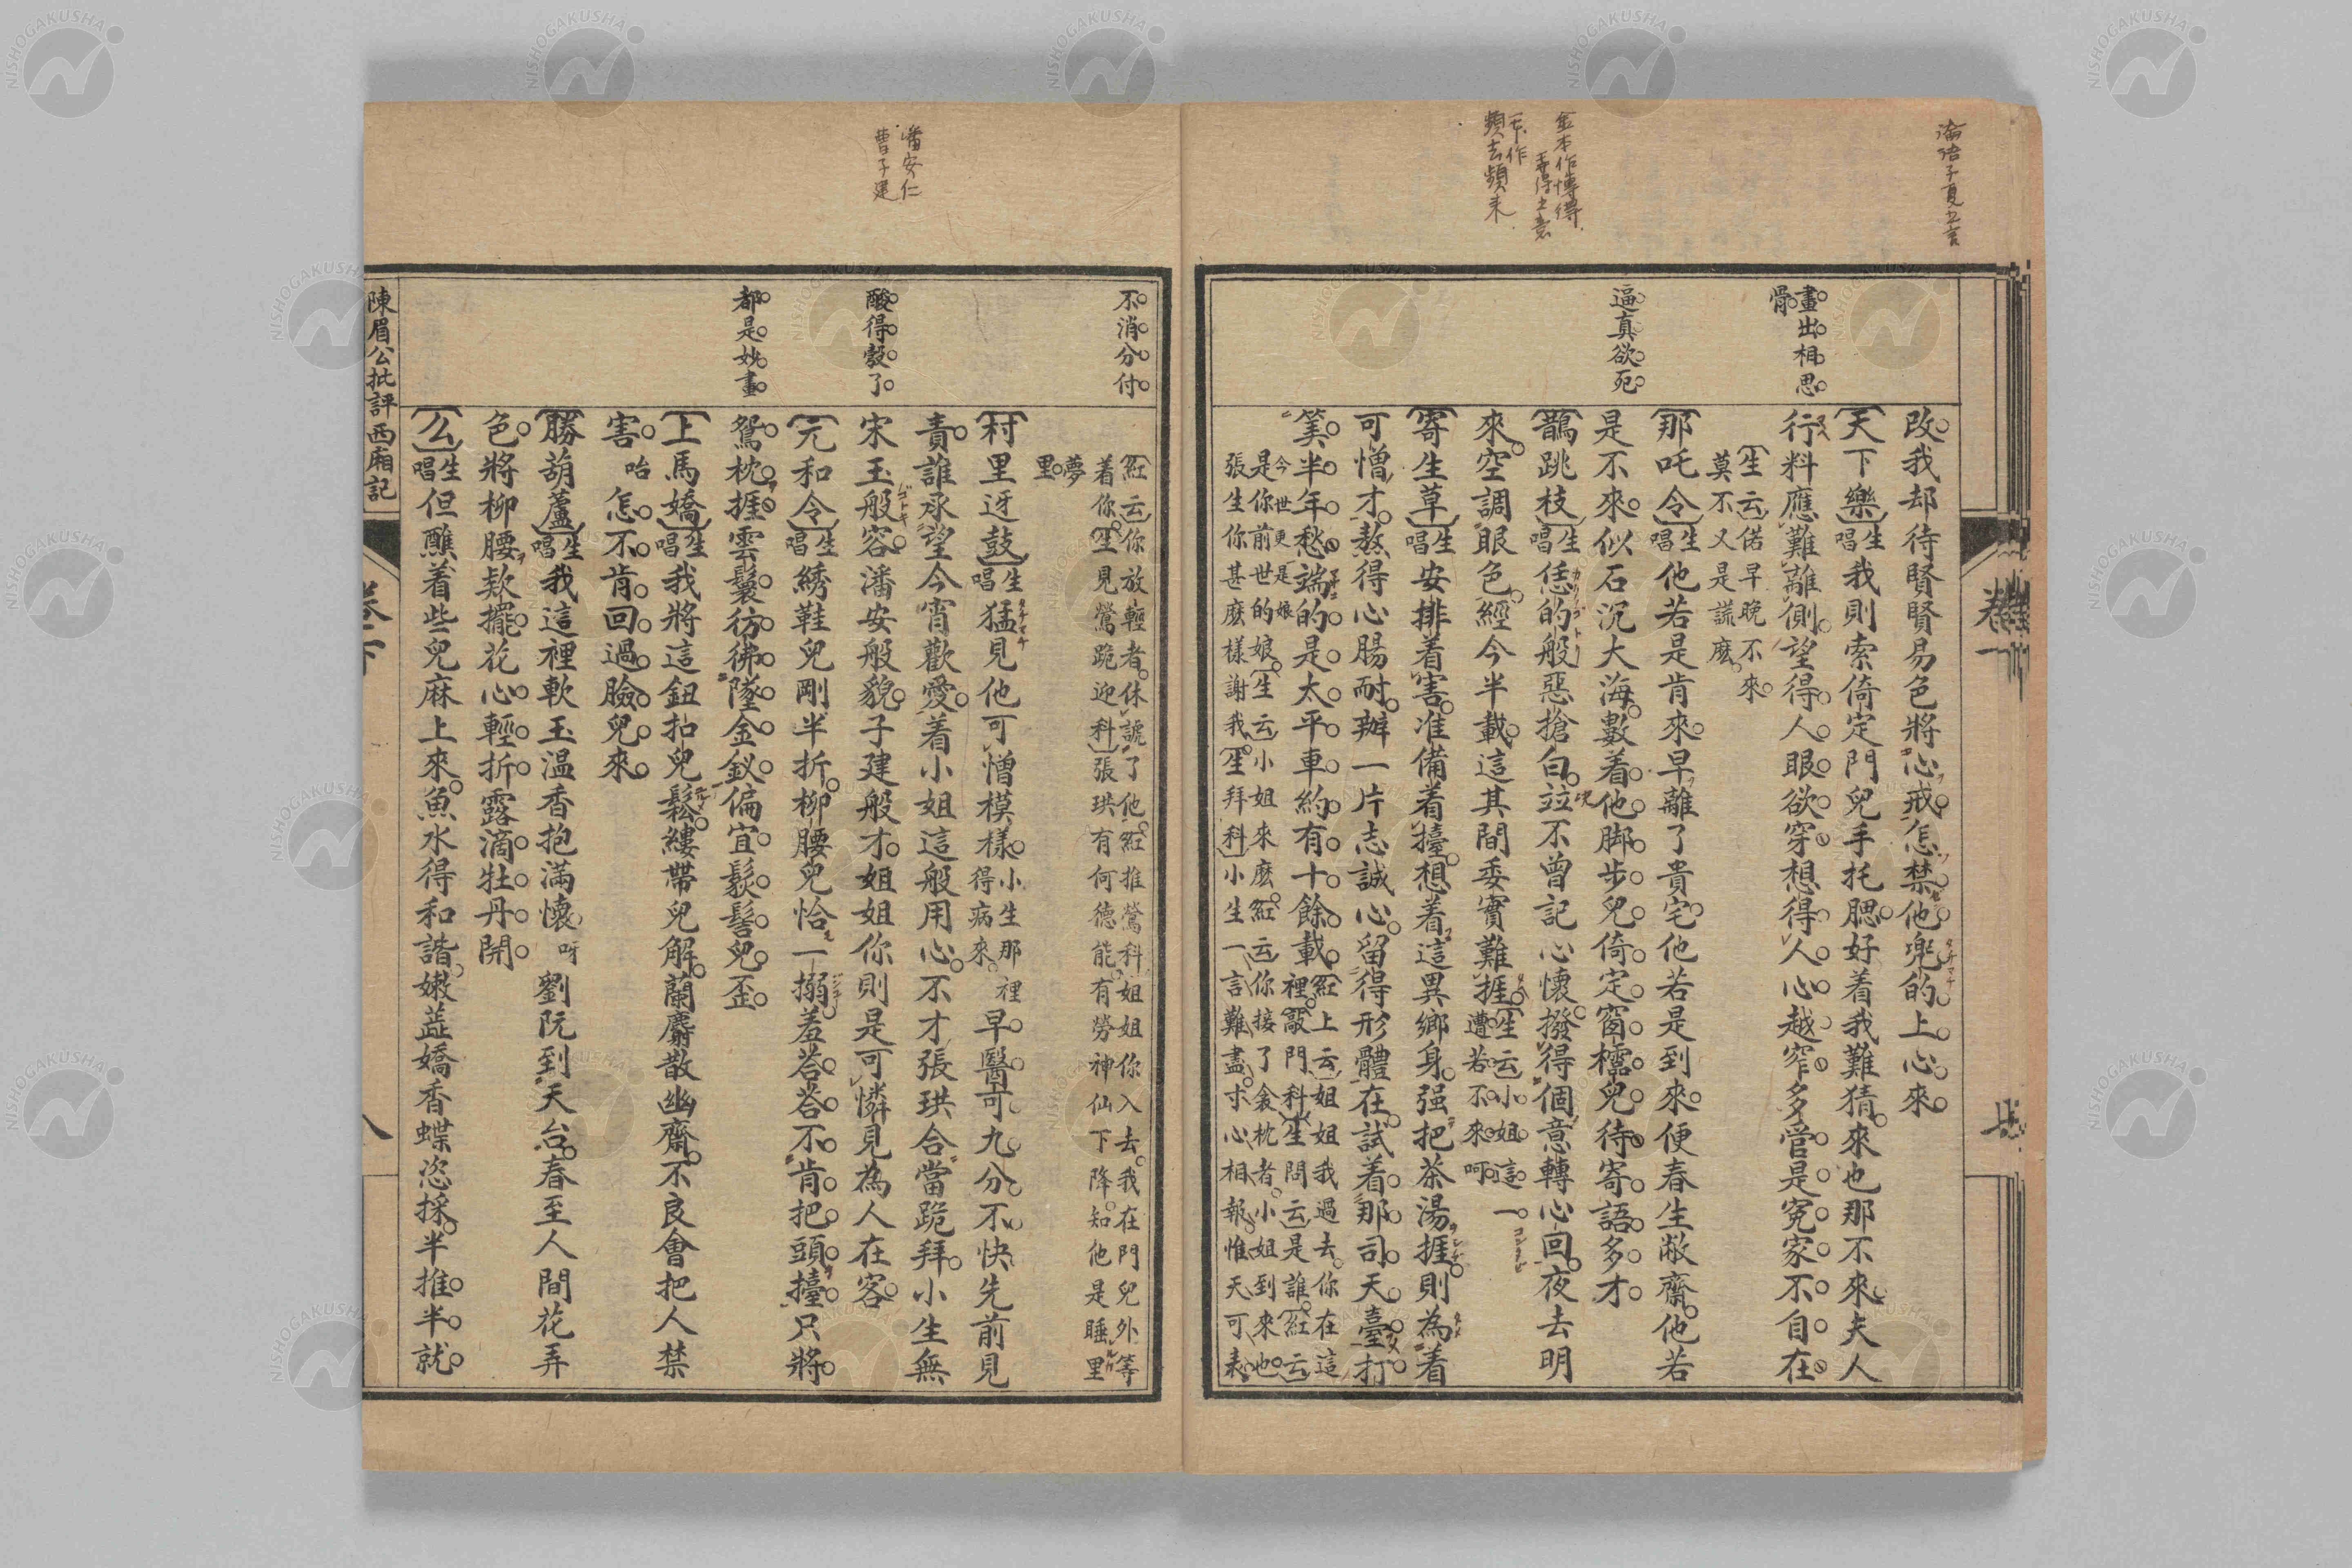 論語子夏之言
金本作博得
弄得之意
一本作
頻去頻來
畫出相思
骨
逼真欲死
改我却待賢賢易色將心戒怎禁他兜的上心來
【天下樂】生唱我則索倚定門兒手托腮好着我難猜來也那不來夫人
行料應難離側望得人眼欲穿想得人心越窄多管是冤家不自在
【生云】偌早晚不來
莫不又是謊麽
【那吒令】生唱他若是肯來早離了貴宅他若是到來便春生敝齋他若
是不來似石沉大海數着他脚步兒倚定窗櫺兒待寄語多才
【鵲跳枝】生唱恁的般惡搶白竝不曾記心懷撥得個意轉心回夜去明
來空調眼色經今半載這其間委實難捱【生云】小姐這一遭若不來呵
【寄生草】生唱安排着害准備着擡想着這異鄉身强把茶湯捱則為着
可憎才熬得心腸耐辦一片志誠心留得形體在試着那司天臺打
筭半年愁端的是太平車約有十餘載【紅上云】姐姐我過去你在這裡【敲門科】【生問云】是誰【紅云】
是你前世的娘【生云】小姐來麽【紅云】你接了衾枕者小姐到來也
今世更是娘
張生你甚麽樣謝我【生拜科】小生一言難盡寸心相報惟天可表
卷一
不消分付
酸得彀了
都是妙畫
潘安仁
曹子建
【紅云】你放輕者休諕了他【紅推鶯科】姐姐你入去我在門兒外等
着你【生見鶯跪迎科】張珙有何德能有勞神仙下降知他是睡里
夢
里
【村里迓鼓】生唱猛見他可憎模樣小生那裡得病來早醫可九分不快先前見
責誰承望今宵歡愛着小姐這般用心不才張珙合當跪拜小生無
宋玉般容潘安般貌子建般才姐姐你則是可憐見為人在客
【元和令】生唱綉鞋兒剛半折柳腰兒恰一搦羞荅荅不肯把頭擡只將
鴛枕捱雲鬟彷彿墜金釵偏宜鬏髻兒歪
【上馬嬌】生唱我將這鈕扣兒鬆縷帶兒解蘭麝散幽齋不良會把人禁
害咍怎不肯回過臉兒來
【勝葫蘆】生唱我這裡軟玉温香抱滿懷呀劉阮到天台春至人間花弄
色將柳腰欵擺花心輕折露滴牡丹開
【么】生唱但蘸着些兒麻上來魚水得和諧嫩蕋嬌香蝶恣採半推半就
陳眉公批評西廂記
卷下
八